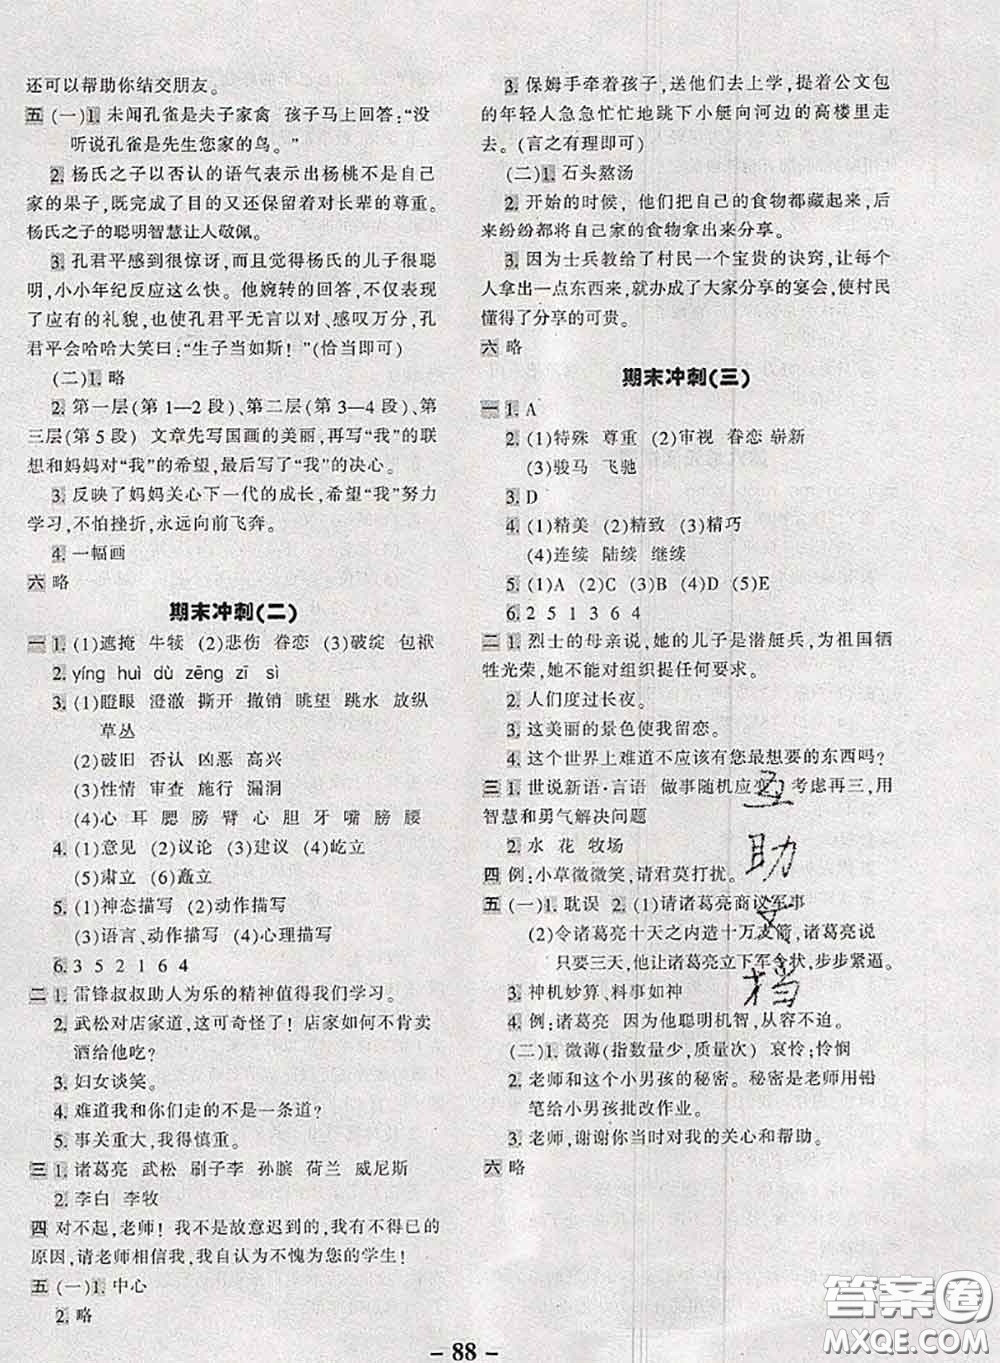 还可以帮助你结交朋友。
五 (一)1. 未闻孔雀是夫子家禽 孩子马上回答:“没
听说孔雀是先生您家的鸟。”
2. 杨氏之子以否认的语气表示出杨桃不是自己
家的果子,既完成了目的又还保留着对长辈的尊重。
杨氏之子的聪明智慧让人敬佩。
3. 孔君平感到很惊讶,而且觉得杨氏的儿子很聪
明,小小年纪反应这么快。他婉转的回答,不仅表现
了应有的礼貌,也使孔君平无言以对、感叹万分,孔
君平会哈哈大笑曰:“生子当如斯！”(恰当即可)
(二)1. 略
2. 第一层(第 1—2 段)、第二层(第 3—4 段)、第
三层(第 5 段) 文章先写国画的美丽,再写“我”的联
想和妈妈对“我”的希望,最后写了“我”的决心。
3. 反映了妈妈关心下一代的成长,希望“我”努力
学习,不怕挫折,永远向前飞奔。
4. 一幅画
六 略
期末冲刺(二)
一 1. (1)遮掩 牛犊 (2)悲伤 眷恋 (3)破绽 包袱
2. yíng huì dù zēng zī sì
3. (1)瞪眼 澄澈 撕开 撤销 眺望 跳水 放纵
草丛
(2)破旧 否认 凶恶 高兴
(3)性情 审查 施行 漏洞
(4)心 耳 腮 膀 臂 心 胆 牙 嘴 膀 腰
4. (1)意见 (2)议论 (3)建议 (4)屹立
(5)肃立 (6)矗立
5. (1)神态描写 (2)动作描写
(3)语言、动作描写 (4)心理描写
6. 3 5 2 1 6 4
二 1. 雷锋叔叔助人为乐的精神值得我们学习。
2. 武松对店家道,这可奇怪了！店家如何不肯卖
酒给他吃？
3. 妇女谈笑。
4. 难道我和你们走的不是一条道？
5. 事关重大,我得慎重。
三 1. 诸葛亮 武松 刷子李 孙膑 荷兰 威尼斯
2. 李白 李牧
四 对不起,老师！我不是故意迟到的,我有不得已的
原因,请老师相信我,我自认为不愧为您的学生！
五 (一)1. 中心
2. 略
3. 保姆手牵着孩子,送他们去上学,提着公文包
的年轻人急急忙忙地跳下小艇向河边的高楼里走
去。(言之有理即可)
(二)1. 石头熬汤
2. 开始的时候,他们把自己的食物都藏起来,后
来纷纷都将自己家的食物拿出来分享。
3. 因为士兵教给了村民一个宝贵的诀窍,让每个
人拿出一点东西来,就办成了大家分享的宴会,使村民
懂得了分享的可贵。
六 略
期末冲刺(三)
一 1. A
2. (1)特殊 尊重 (2)审视 眷恋 崭新
(3)骏马 飞驰
3. D
4. (1)精美 (2)精致 (3)精巧
(4)连续 陆续 继续
5. (1)A (2)C (3)B (4)D (5)E
6. 2 5 1 3 6 4
二 1. 烈士的母亲说,她的儿子是潜艇兵,为祖国牺
牲光荣,她不能对组织提任何要求。
2. 人们度过长夜。
3. 这美丽的景色使我留恋。
4. 这个世界上难道不应该有您最想要的东西吗？
三 1. 世说新语·言语 做事随机应变、考虑再三,用
智慧和勇气解决问题
2. 水 花 牧场
四 例:小草微微笑,请君莫打扰。
五 (一)1. 耽误 2. (1)请诸葛亮商议军事
(2)令诸葛亮十天之内造十万支箭,诸葛亮说
只要三天,他让诸葛亮立下军令状,步步紧逼。
3. 神机妙算、料事如神
4. 例:诸葛亮 因为他聪明机智,从容不迫。
(二)1. 微薄(指数量少,质量次) 哀怜;怜悯
2. 老师和这个小男孩的秘密。秘密是老师用铅
笔给小男孩批改作业。
3. 老师,谢谢你当时对我的关心和帮助。
六 略
互助文档
- 88 -
答案圈
MXQE.COM